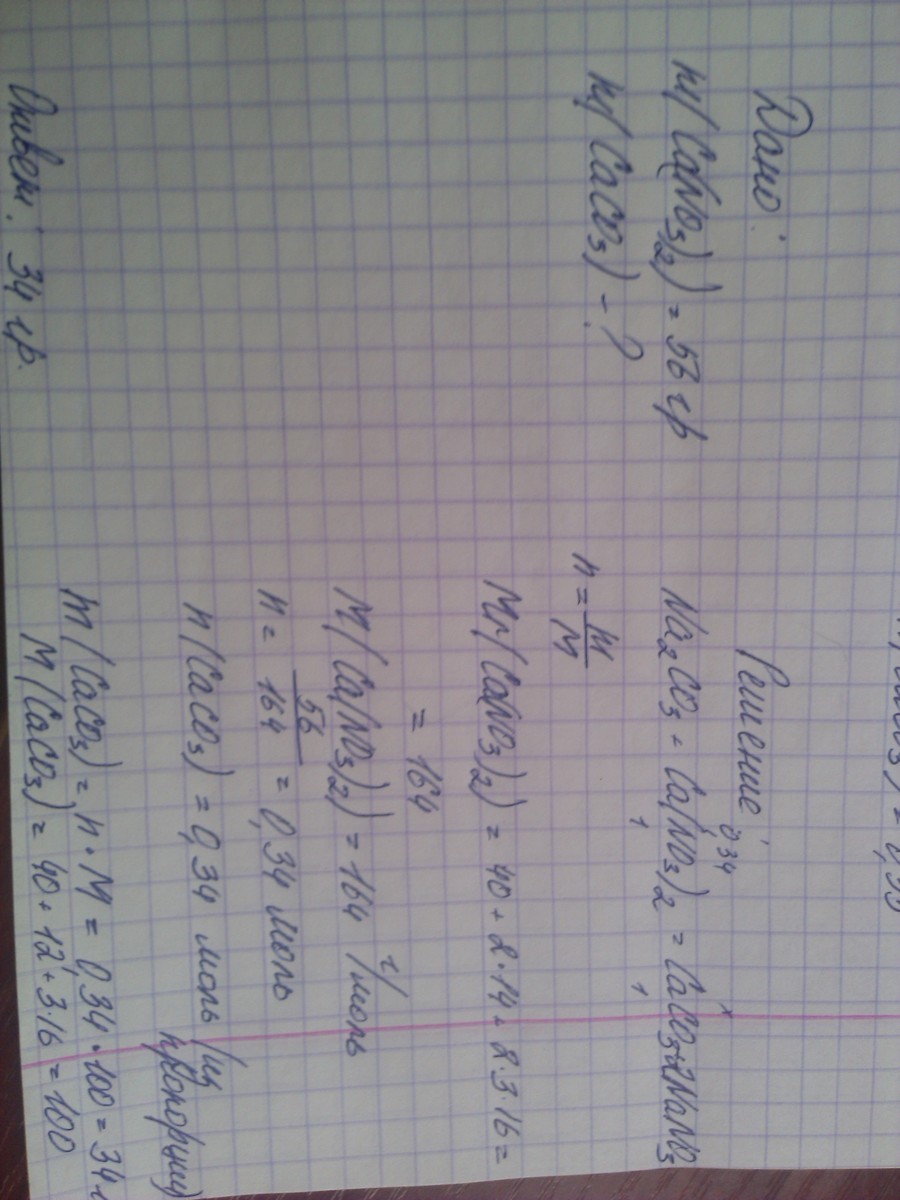 Дано:
m(Ca(NO3)2) = 56 гр
m(CaCO3) - ?
Решение
0,34 x
Na2CO3 + Ca(NO3)2 = CaCO3+2NaNO3
1 1
n = m/M
Mr(Ca(NO3)2) = 40 + 2·14 + 2·3·16 =
= 164
M(Ca(NO3)2) = 164 г/моль
n = 56/164 = 0,34 моль
n(CaCO3) = 0,34 моль (из
пропорции)
m(CaCO3) = n·M = 0,34·100 = 34
M(CaCO3) = 40+12+3·16 = 100
Ответ: 34 гр.